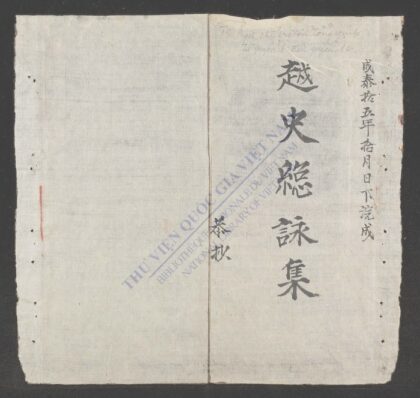 成泰拾五年拾月日下浣成
越史總詠集
恭抄
THƯ VIỆN QUỐC GIA VIỆT NAM
BIBLIOTHÈQUE NATIONALE DE VIET NAM
NATIONAL LIBRARY OF VIETNAM